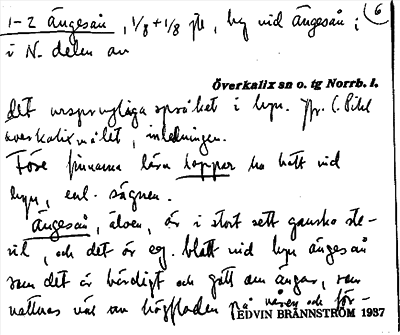 6
1-2 Ängesån, 1/8 + 1/8 , by vid Ängesån;
i N. delen av
Överkalix sn o. tg Norrb. l.
det ursprungliga språket i byn. Jfr. C. Pihl
överkalixmålet, inledningen.
Före finnarna lära lapper ha bott vid
byn, enl. sägnen.
Ängesån, älven, är i stort sett ganska ste-
ril, och det är eg. blott vid byn Ängesån
som det är bördigt och gott om ängar, som
vattnas väl av högfloden på våren och för-
EDVIN BRÄNNSTRÖM 1937